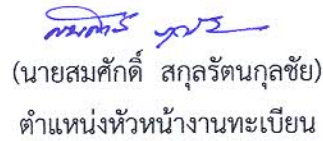 (นายสมศักดิ์ สกุลรัตนกุลชัย)
ตำแหน่งหัวหน้างานทะเบียน